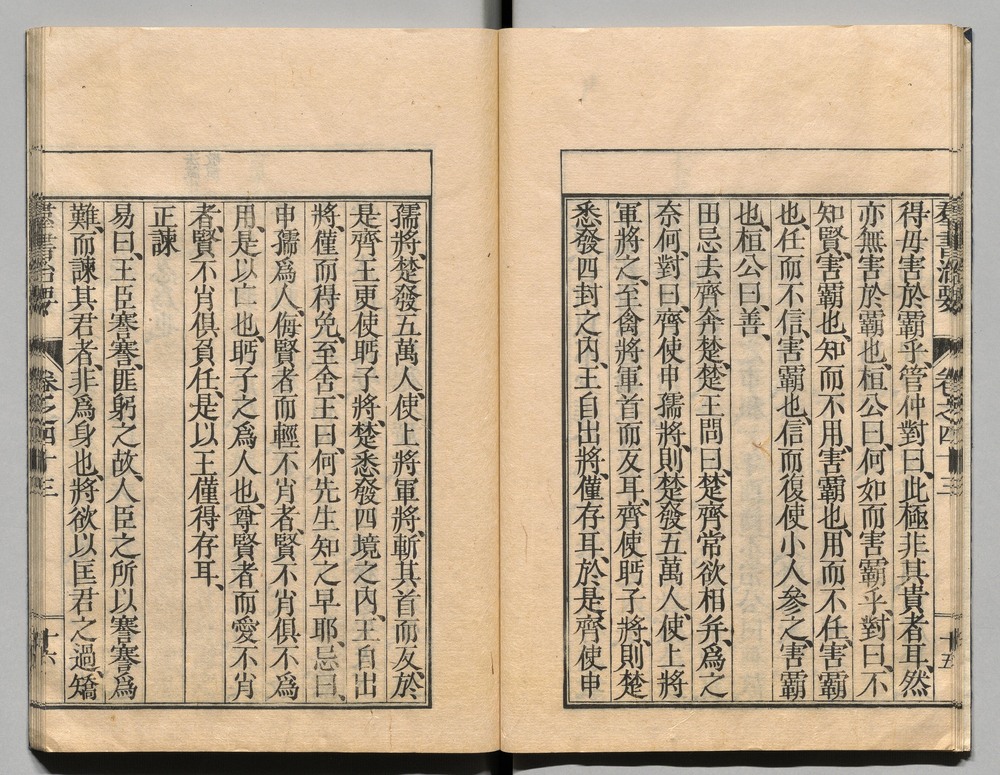 羣書治要 卷之四十三 十五
得毋害於霸乎、管仲對曰、此極非其貴者耳、然
亦無害於霸也、桓公曰、何如而害霸乎、對曰、不
知賢、害霸也、知而不用、害霸也、用而不任、害霸
也、任而不信、害霸也、信而復使小人參之、害霸
也、桓公曰、善、
田忌去齊奔楚、楚王問曰、楚齊常欲相幷、爲之
奈何、對曰、齊使申孺將、則楚發五萬人、使上將
軍將之、至禽將軍首而反耳、齊使眄子將、則楚
悉發四封之內、王自出將、僅存耳、於是、齊使申
孺將、楚發五萬人、使上將軍將、斬其首而反、於
是齊王更使眄子將、楚悉發四境之內、王自出
將、僅而得免、至舍、王曰、何先生知之早耶、忌曰、
申孺爲人、侮賢者而輕不肖者、賢不肖俱不爲
用、是以亡也、眄子之爲人也、尊賢者而愛不肖
者、賢不肖俱負任、是以王僅得存耳、
正諫
易曰、王臣謇謇、匪躬之故、人臣之所以謇謇爲
難、而諫其君者、非爲身也、將欲以匡君之過、矯
羣書治要 卷之四十三 十六